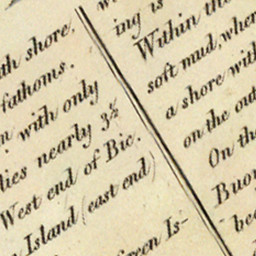 th shore,
fathoms.
with only
lies nearly 3½
West end of Bic.
Island (east end)
Green Is-
ing is
Within the
soft mud, wher
a shore with
on the out
On th
Buoy
bea